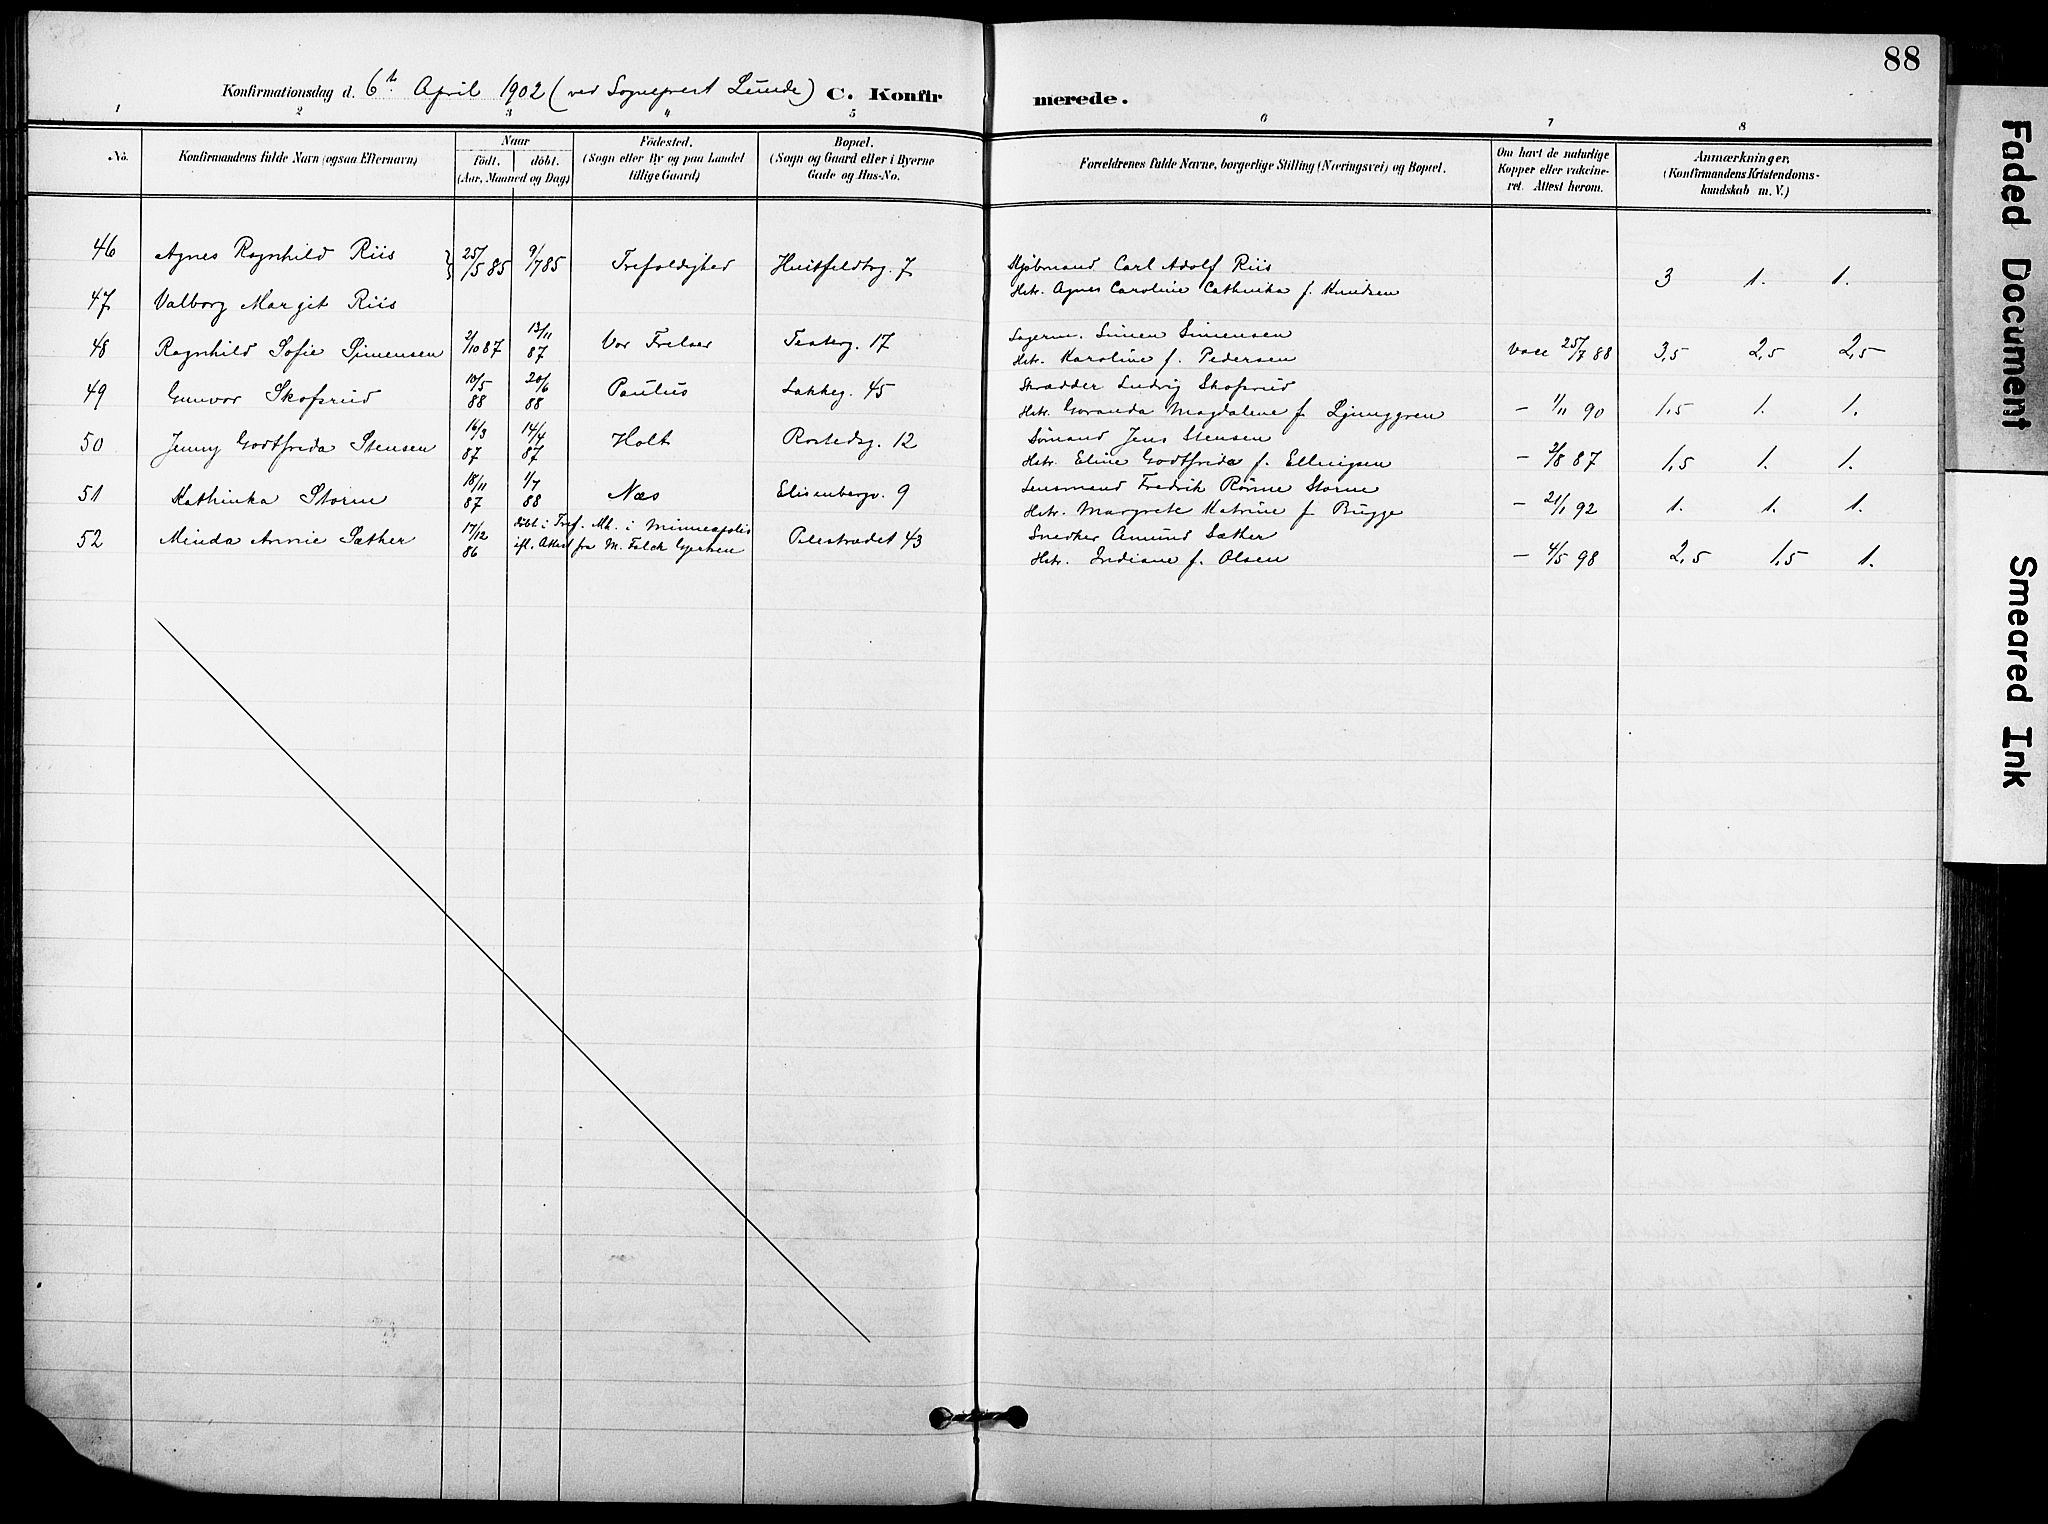 88
Konfirmationsdag d. 6th April 1902 (ved Sogneprest Lunde) C. Konfirmerede.
1 2 3 4 5 6 7 8
No. Konfirmandens fulde Navn (ogsaa Efternavn) Naar födt. döbt. (Aar, Maaned og Dag) Födested. (Sogn eller By og paa Landet tillige Gaard) Bopæl. (Sogn og Gaard eller i Byerne Gade og Hus-No. Forældrenes fulde Navne, borgerlige Stilling (Næringsvei) og Bopæl. Om havt de naturlige Kopper eller vakcineret. Attest herom. Anmærkninger, (Konfirmandens Kristendomskundskab m. V.)
46 Agnes Ragnhild Riis } 25/5 85 9/7 85 Trefoldighed Huitfeldtsg. 7 Skibmand Carl Adolf Riis
Hstr. Agnes Caroline Cathinka f. Knudsen 3 1. 1.
47 Valborg Margit Riis
48 Ragnhild Sofie Simensen 2/10 87 13/11 87 Vor Frelser Teaterg. 17 Lagerm. Simen Simensen
Hstr. Karoline f. Pedersen vacc 25/7 88 3,5 2,5 2,5
49 Gunvor Skofsrud 10/5 88 20/6 88 Paulus Lakkeg. 45 Skrædder Ludvig Skofsrud
Hstr. Goranda Magdalene f. Ljunggren – 1/11 90 1,5 1. 1.
50 Jenny Godtfreda Stensen 16/3 87 14/4 87 Holt Rostedsg. 12 Sømand Jens Stensen
Hstr. Eline Godtfreda f. Ellingsen – 2/8 87 1,5 1. 1.
51 Kathinka Storm 18/11 87 1/7 88 Næs Elisenbergv. 9 Lensmand Fredrik Rønne Storm
Hstr. Margrete Katrine f. Bugge – 21/1 92 1. 1. 1.
52 Minda Annie Sæther 17/12 86 döbt i Tref. Mh. i Minneapolis
ifl. Attest fra M. Falck Gjertsen Pilestrædet 43 Snedker Amund Sæther
Hstr. Indiane f. Olsen – 4/5 98 2,5 1,5 1.
Faded Document
Smeared Ink